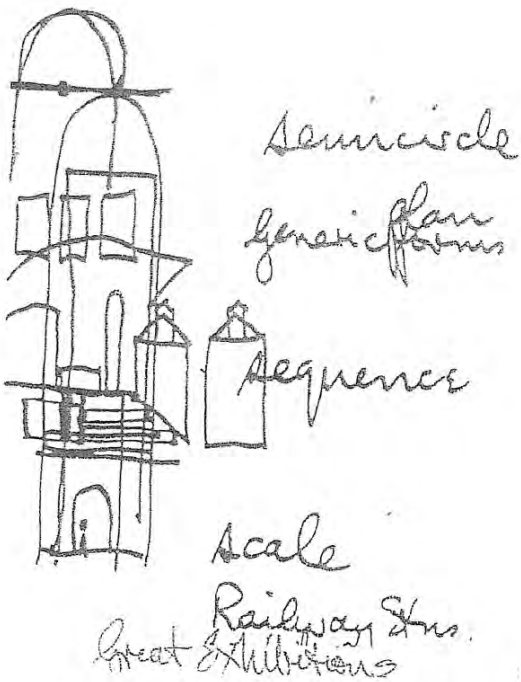 semicircle
plan
Generic forms
sequence
scale
Railway Stns.
Great Exhibitions